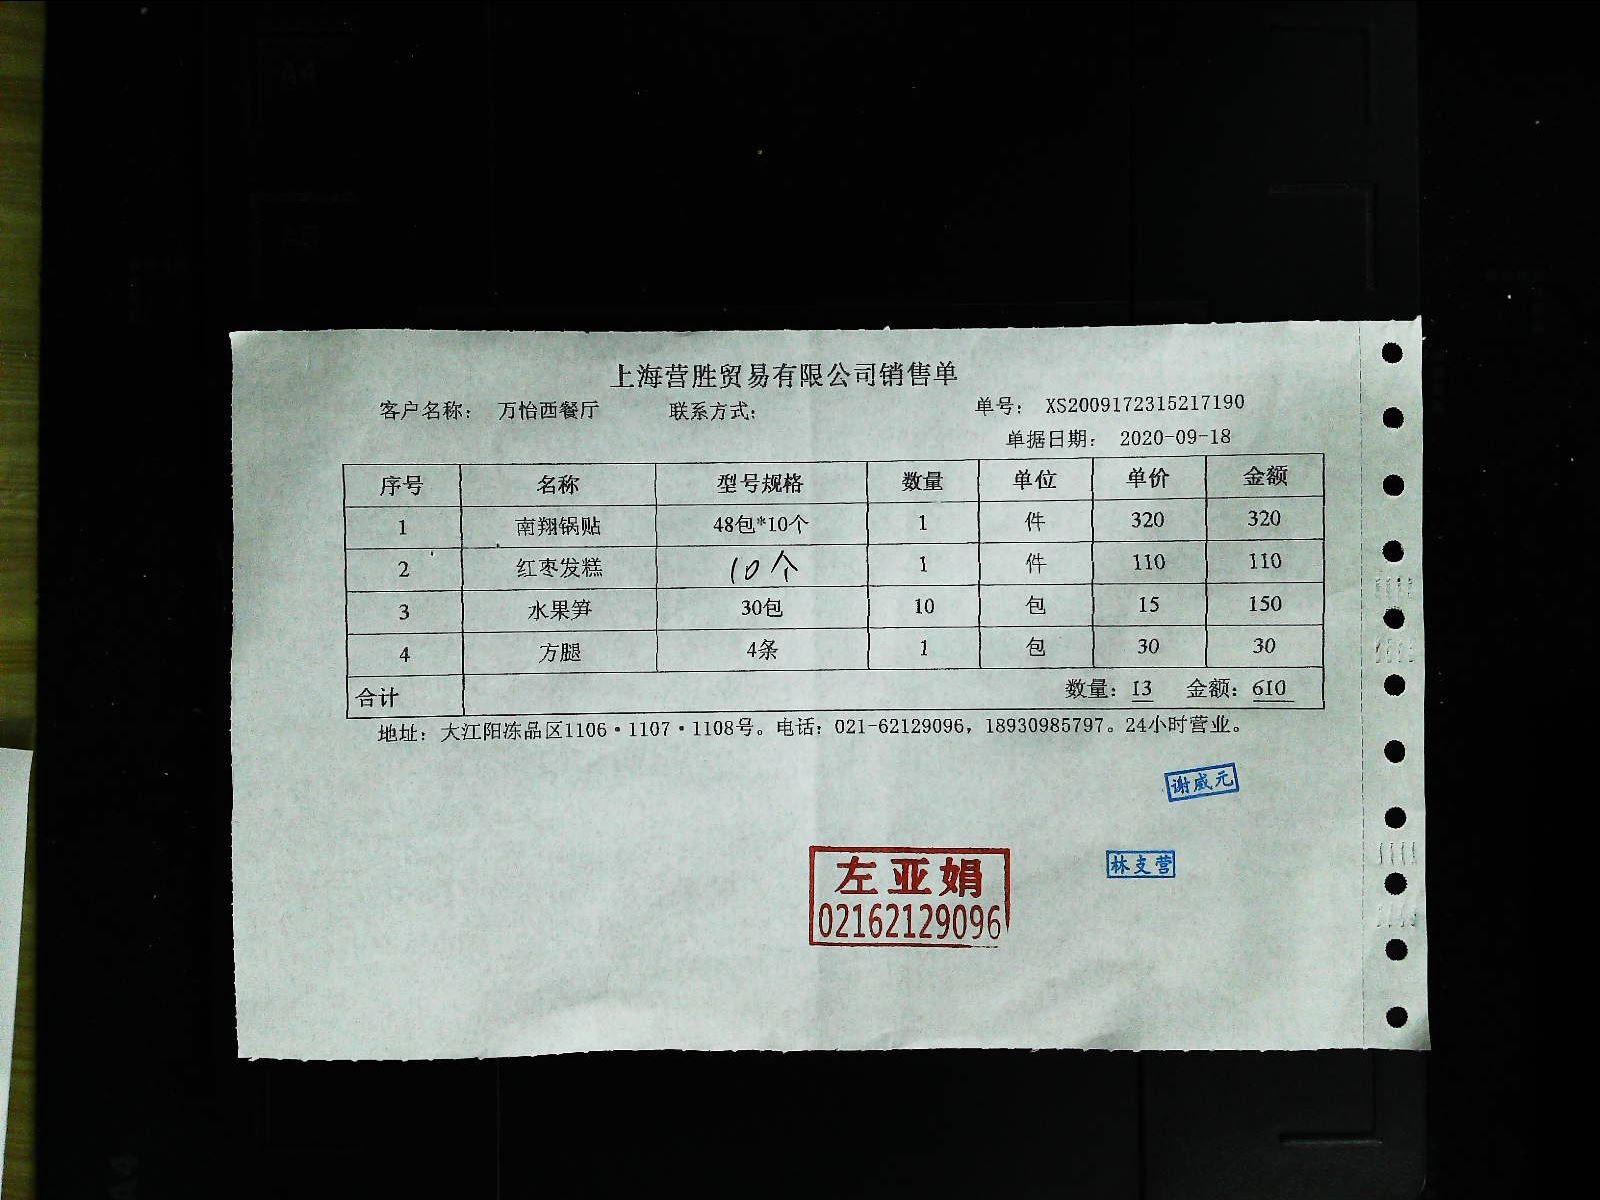 上海营胜贸易有限公司销售单
客户名称： 万怡西餐厅 联系方式： 单号： XS2009172315217190
单据日期： 2020-09-18
序号 名称 型号规格 数量 单位 单价 金额
1 南翔锅贴 48包*10个 1 件 320 320
2 红枣发糕 10个 1 件 110 110
3 水果笋 30包 10 包 15 150
4 方腿 4条 1 包 30 30
合计 数量：13 金额：610
地址：大江阳冻品区1106·1107·1108号。电话：021-62129096，18930985797。24小时营业。
谢威元
林支营
左亚娟
02162129096